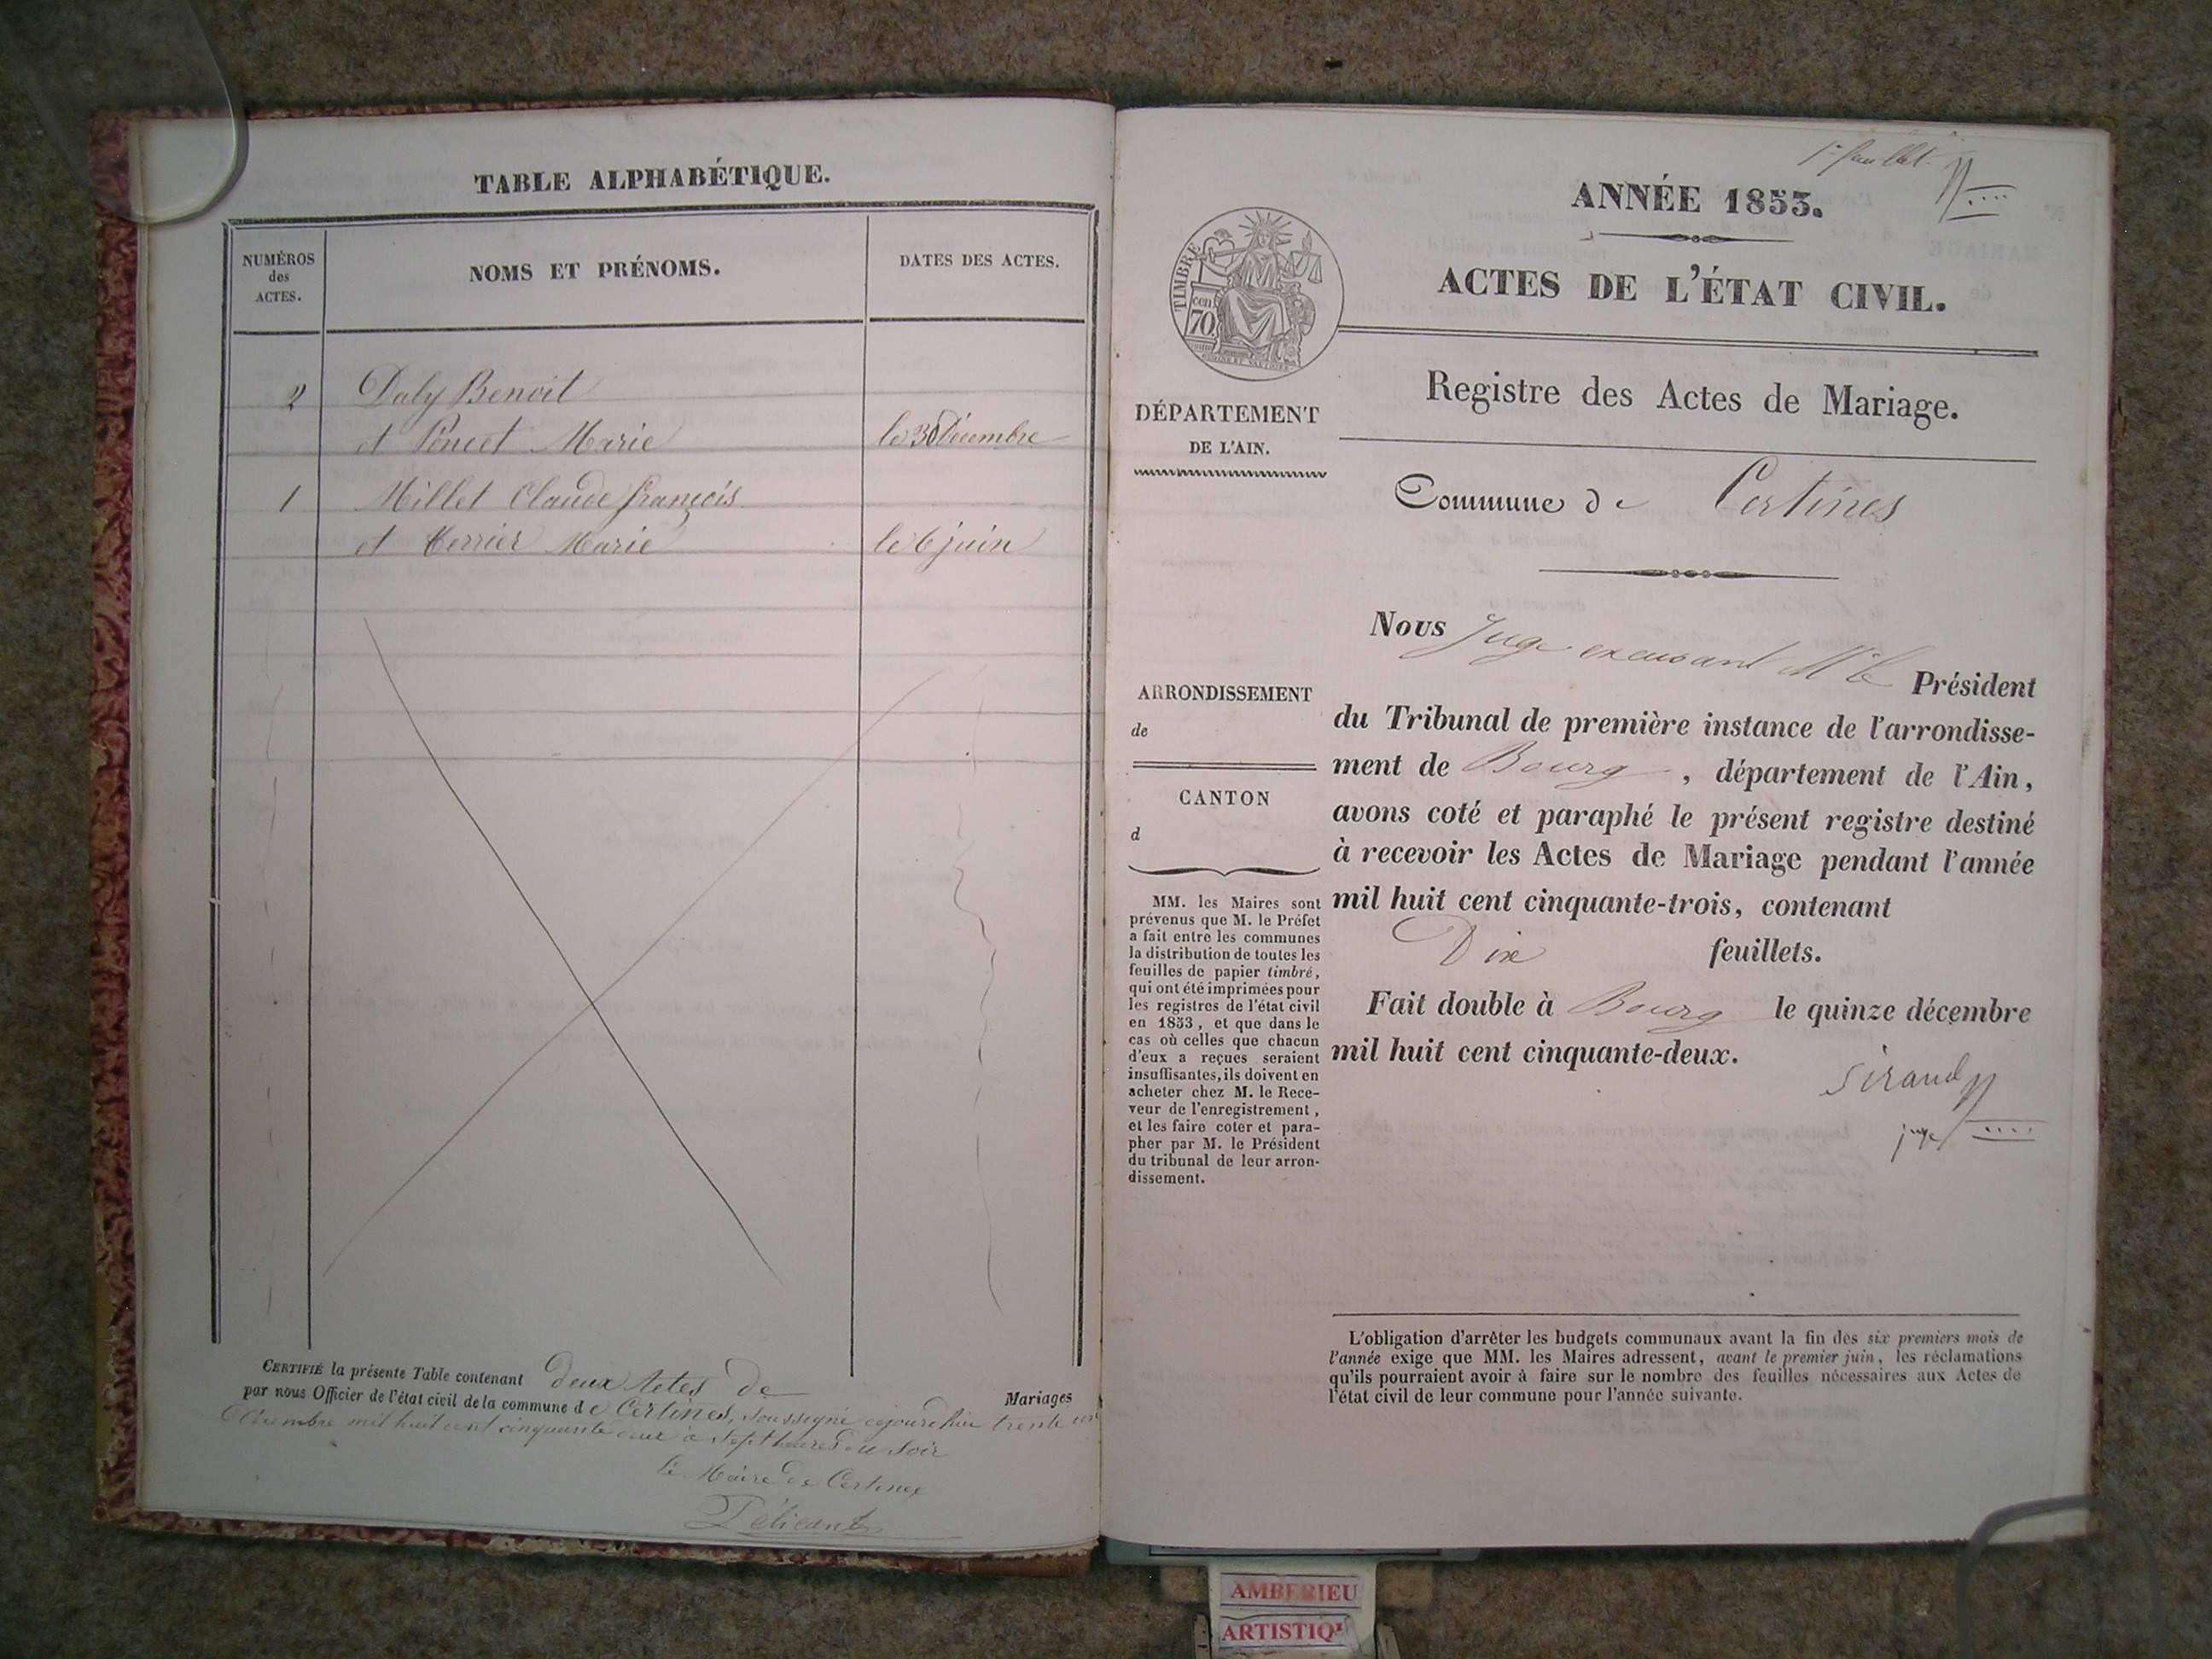 TABLE ALPHABÉTIQUE.
NUMÉROS
des
ACTES.
NOMS ET PRÉNOMS.
DATES DES ACTES.
2 Daly Benoit
et Poncet Marie le 30 Décembre
1 Millet Claude françois
et Marie le 6 juin
CERTIFIÉ la présente Table contenant deux Actes de Mariages
par nous Officier de l'état civil de la commune de Certines, soussigné cejourd'hui trente un
Décembre mil huit cent cinquante deux à sept heures du soir
Le Maire de Certines
1er feuillet
ANNÉE 1853.
ACTES DE L'ÉTAT CIVIL.
TIMBRE
cent.
70
DÉPARTEMENT
DE L'AIN.
Registre des Actes de Mariage.
Commune de Certines
Nous Juge excusant Mr le Président
du Tribunal de première instance de l'arrondisse-
ment de Bourg, département de l'Ain,
avons coté et paraphé le présent registre destiné
à recevoir les Actes de Mariage pendant l'année
mil huit cent cinquante-trois, contenant
Dix feuillets.
Fait double à Bourg le quinze décembre
mil huit cent cinquante-deux.
Sirand
juge
ARRONDISSEMENT
de
CANTON
d
MM. les Maires sont
prévenus que M. le Préfet
a fait entre les communes
la distribution de toutes les
feuilles de papier timbré,
qui ont été imprimées pour
les registres de l'état civil
en 1853, et que dans le
cas où celles que chacun
d'eux a reçues seraient
insuffisantes, ils doivent en
acheter chez M. le Rece-
veur de l'enregistrement,
et les faire coter et para-
pher par M. le Président
du tribunal de leur arron-
dissement.
L'obligation d'arrêter les budgets communaux avant la fin des six premiers mois de
l'année exige que MM. les Maires adressent, avant le premier juin, les réclamations
qu'ils pourraient avoir à faire sur le nombre des feuilles nécessaires aux Actes de
l'état civil de leur commune pour l'année suivante.
AMBERIEU
ARTISTIQ